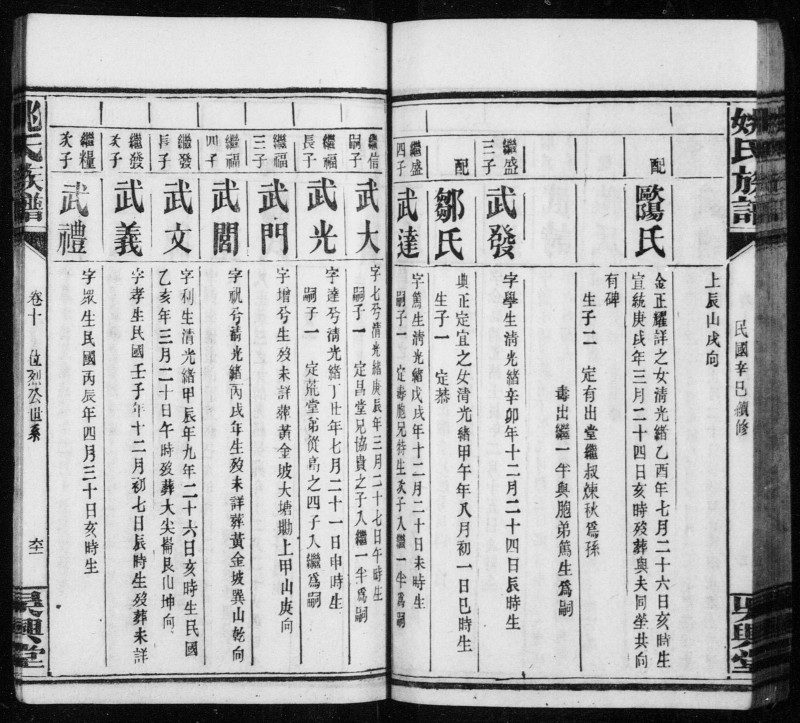 姚氏族譜
民國辛巳續修
吳興堂
上辰山戌向
配
歐陽氏
金正耀詳之女清光緒乙酉年七月二十六日亥時生
宣統庚戌年三月二十四日亥時歿葬與夫同塋共向
有碑
生子二 定有出堂繼叔煉秋為孫
毒出繼一半與胞弟篤生為嗣
繼盛
三子
武發
字學生清光緒辛卯年十二月二十四日辰時生
配
鄒氏
典正定宜之女清光緒甲午年八月初一日巳時生
生子一 定恭
繼盛
四子
武達
字篤生清光緒戊戌年十二月二十日未時生
嗣子一 定毒胞兄特生次子入繼一半為嗣
繼信
嗣子
武大
字七兮清光緒庚辰年三月二十七日午時生
嗣子一 定昌堂兄協貴之子入繼一半為嗣
繼福
長子
武光
字達兮清光緒丁丑年七月二十一日申時生
嗣子一 定荒堂弟從高之四子入繼為嗣
繼福
三子
武門
字增兮生歿未詳葬黃金坡大塘坳上甲山庚向
繼福
四子
武閣
字祝兮清光緒丙戌年生歿未詳葬黃金坡巽山乾向
繼發
長子
武文
字利生清光緒甲辰年九年二十六日亥時生民國
乙亥年三月二十日午時歿葬大尖崙艮山坤向
繼發
次子
武義
字孝生民國壬子年十二月初七日辰時生歿葬未詳
繼糧
次子
武禮
字眾生民國丙辰年四月三十日亥時生
姚氏族譜
卷十 位烈公世系
吳興堂